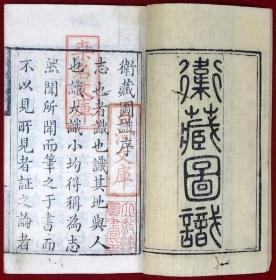 衛藏圖識
衛藏圖識序
志也者識也識其地與人
也識大識小均得稱為志
然聞所聞而筆之于書而
不以見所見者証之論者
文庫